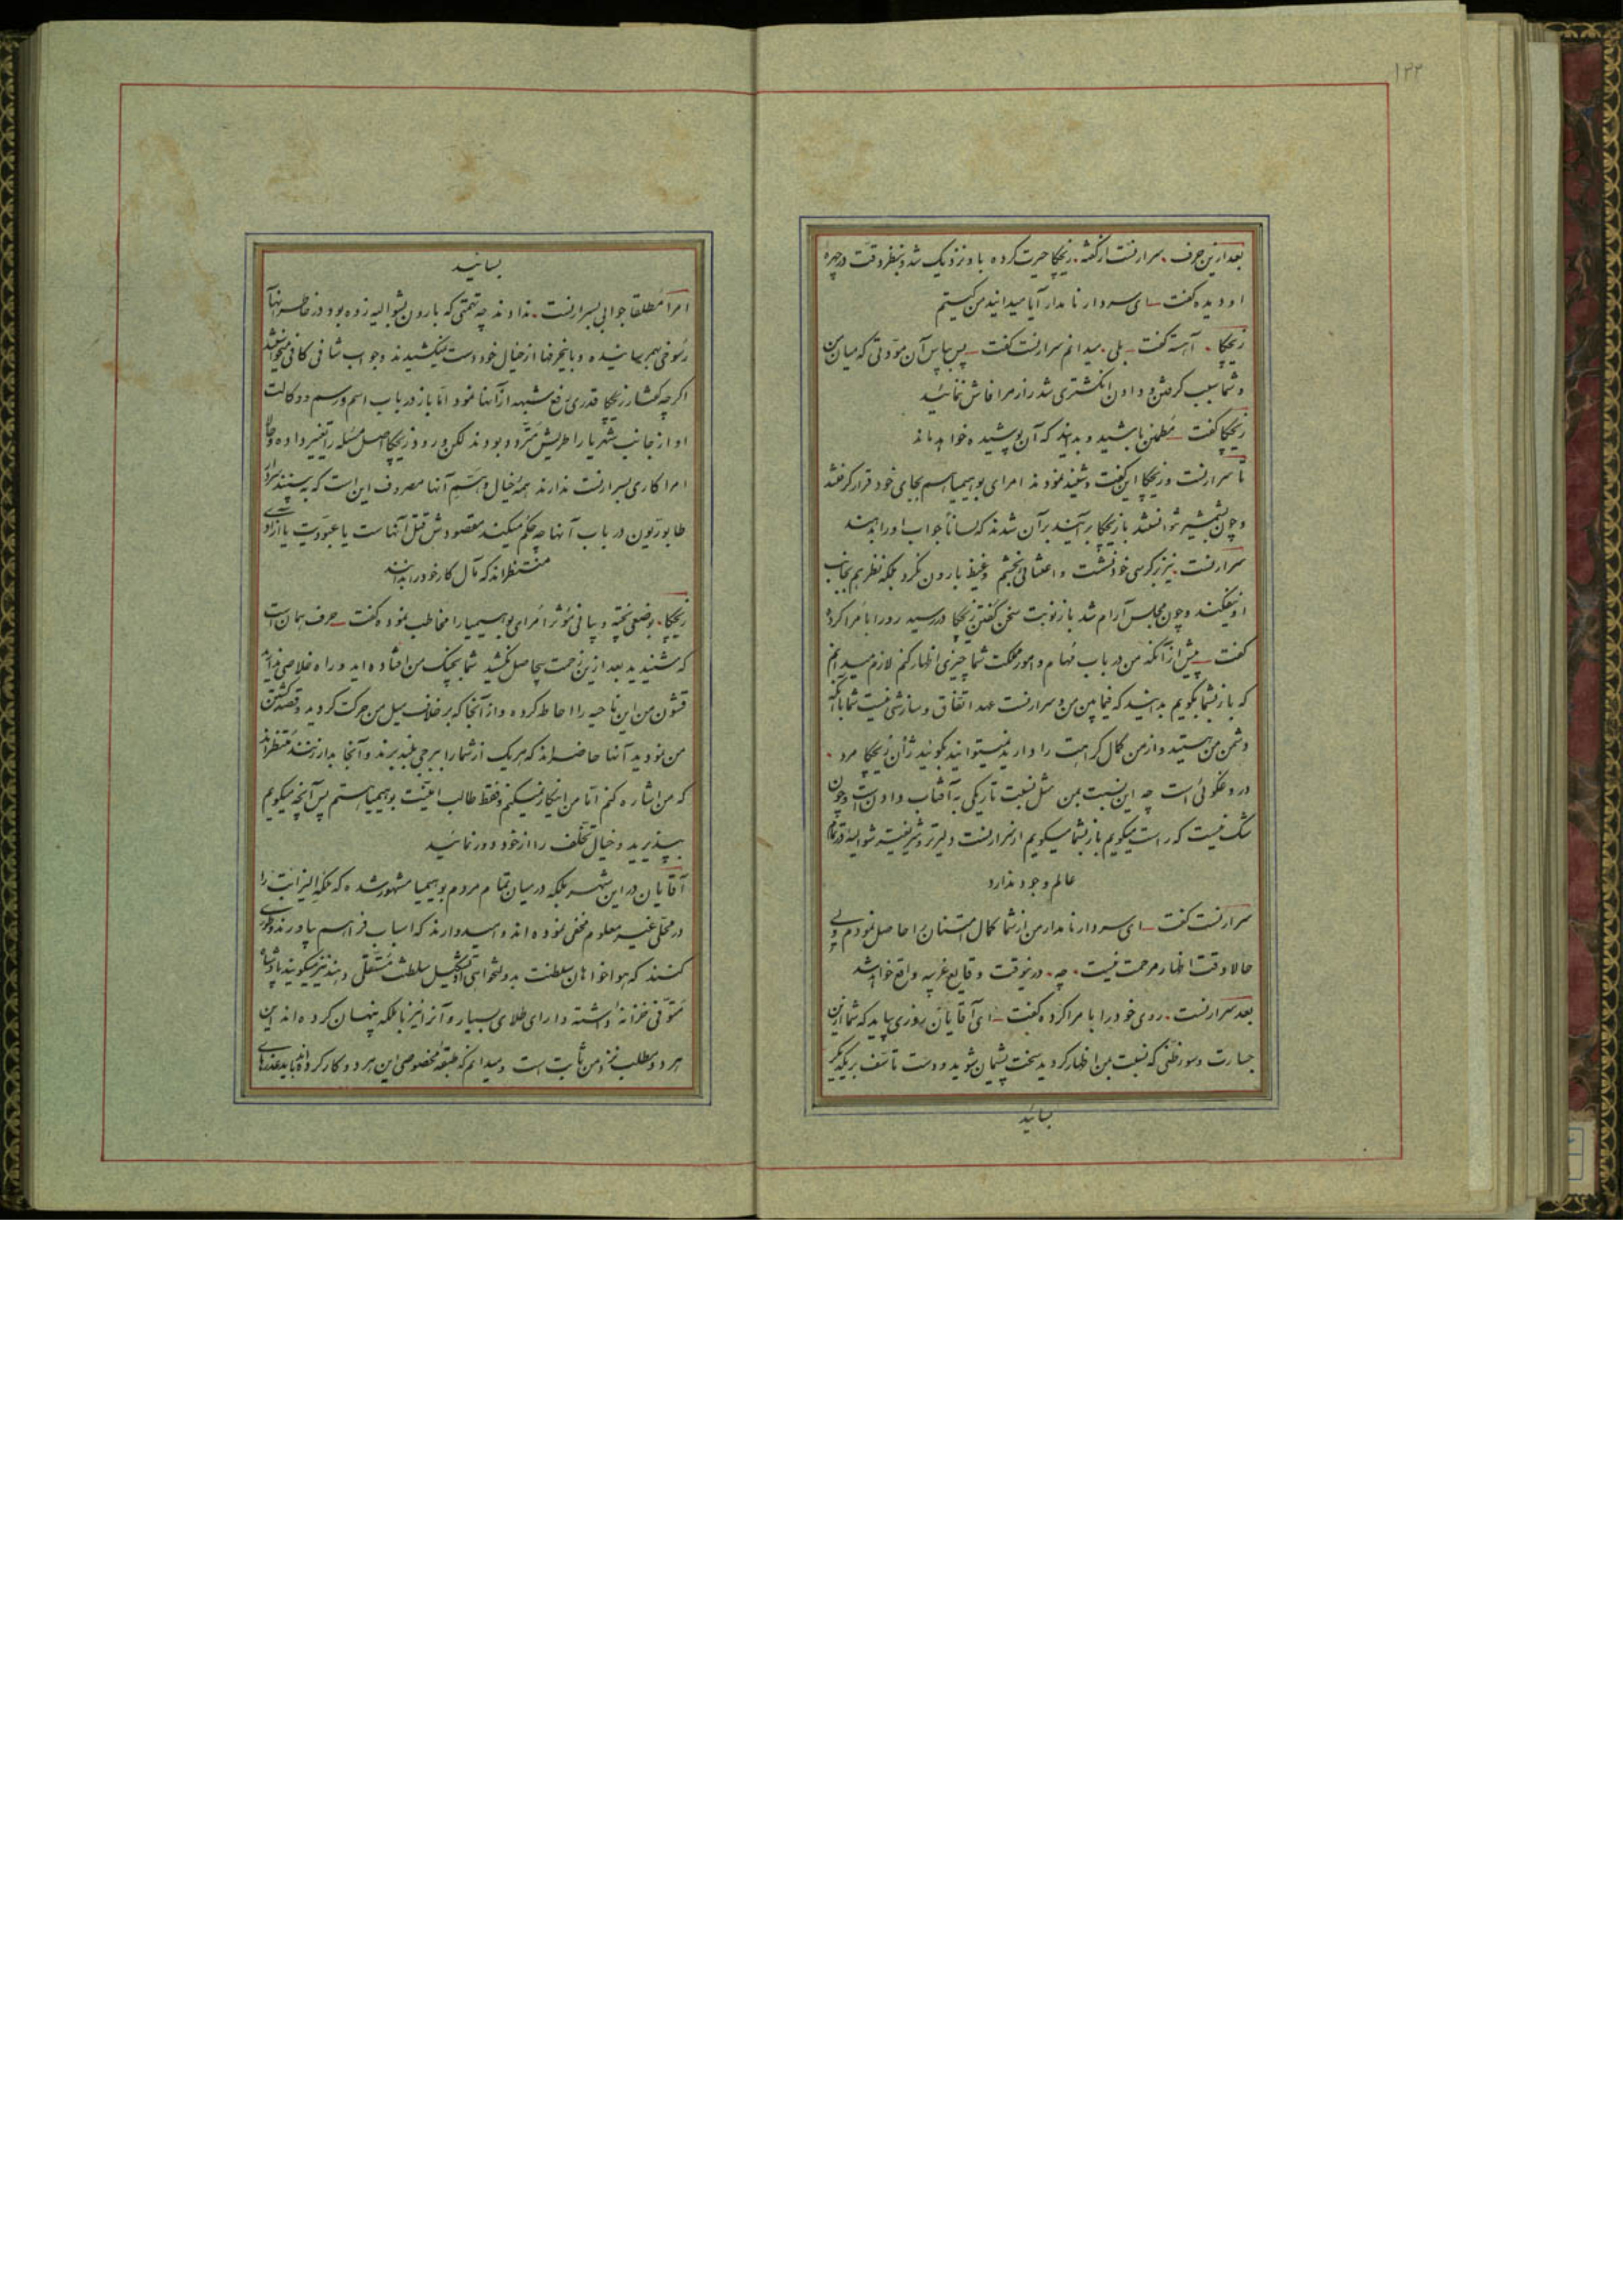 ۱۳۳
بعد ازین حرف سرارنست ارکشه زیچکا حیرت کرده باو نزدیک شد و بنظر دقت در چهره
او دیده گفت ای سردار نامدار آیا میدانید من کیستم
زیچکا آهسته گفت بلی میدانم سرارنست گفت پس بپاس آن مودتی که میان من
و شما بسبب گرفتن و دادن انگشتری شد راز مرا فاش ننمائید
زیچکا گفت مطمئن باشید و بدانید که آن پوشیده خواهد ماند
تا سرارنست و زیچکا این گفت و شنید نمودند امرای بوهیمیا هم بجای خود قرار گرفتند
و چون بشمشیر نتوانستند با زیچکا برآیند بر آن شدند که لساناً جواب او را بدهند
سرارنست نیز بر کرسی خود نشست و اعتنائی بخشم و غیظ بارون نکرد بلکه نظر هم بجانب
او نیفکند و چون مجلس آرام شد باز نوبت سخن گفتن زیچکا در رسید رو را بامرا کرده
گفت پیش از آنکه من در باب مهام و امور مملکت شما چیزی اظهار کنم لازم میدانم
که باز بشما بگویم بدانید که فیما بین من و سرارنست عهد اتفاق و سازشی نیست شما با آنکه
دشمن من هستید و از من کمال کراهت را دارید نمیتوانید بگویند ژان زیچکا مرد
دروغگوئی است چه این نسبت بمن مثل نسبت تاریکی به آفتاب دادن است و چون
شک نیست که راست میگویم باز بشما میگویم از سرارنست دلیرتر و شریفتر شوالیه در تمام
عالم وجود ندارد
سرارنست گفت ای سردار نامدار من از شما کمال امتنان را حاصل نمودم ولی
حالا وقت اظهار مرحمت نیست چه درینوقت وقایع غریبه واقع خواهد شد
بعد سرارنست روی خود را بامرا کرده گفت ای آقایان روزی بیاید که شما ازین
جسارت و سوء ظنی که نسبت بمن اظهار کردید سخت پشیمان شوید و دست تأسف بر یکدیگر
بسائید
بسائید
امرا مطلقا جوابی بسرارنست ندادند چه تهمتی که بارون بشوالیه زده بود در خاطر آنها
رسوخی بهم رسانیده و باینحرفها از خیال خود دست نمیکشیدند و جواب شافی کافی میخواستند
اگرچه گفتار زیچکا قدری رفع شبهه از آنها نمود اما باز در باب اسم و رسم و وکالت
او از جانب شهریار اطریش متردد بودند لکن ورود زیچکا اصل مسئله را تغییر داده و حالا
امرا کاری بسرارنست ندارند همه خیال و هم آنها مصروف این است که ببینند سردار
طابوریون در باب آنها چه حکم میکند مقصودش قتل آنهاست یا عبودیت یا آزادی
منتظراند که مآل کار خود را بدانند
زیچکا بوضعی پخته و بیانی مؤثر امرای بوهیمیا را مخاطب نموده گفت حرف همان است
که شنیدید بعد ازین زحمت بیحاصل نکشید شما بچنک من افتاده اید و راه خلاصی ندارید
قشون من این ناحیه را احاطه کرده و از آنجا که بر خلاف میل من حرکت کردید و قصد کشتن
من نمودید آنها حاضراند که هر یک از شما را ببرجی بلند برند و آنجا بدار زنند منتظراند
که من اشاره کنم اما من اینکار نمیکنم و فقط طالب امنیت بوهیمیا هستم پس آنچه میگویم
بپذیرید و خیال تخلف را از خود دور نمائید
آقایان در این شهر بلکه در میان تمام مردم بوهیمیا مشهور شده که ملکه الیزابت را
در محلی غیر معلوم مخفی نموده اند و امیدوارند که اسباب فراهم بیاورند و طوری
کنند که هواخواهان سلطنت بدولتخواهی او تشکیل سلطنت مستقلی دهند نیز میگویند پادشاه
متوفی خزانه داشته دارای طلای بسیار و آنرا نیز با ملکه پنهان کرده اند این
هر دو مطلب نزد من ثابت است و میدانم که طبقه مخصوصی این هر دو کار کرده اند باید عذرهای